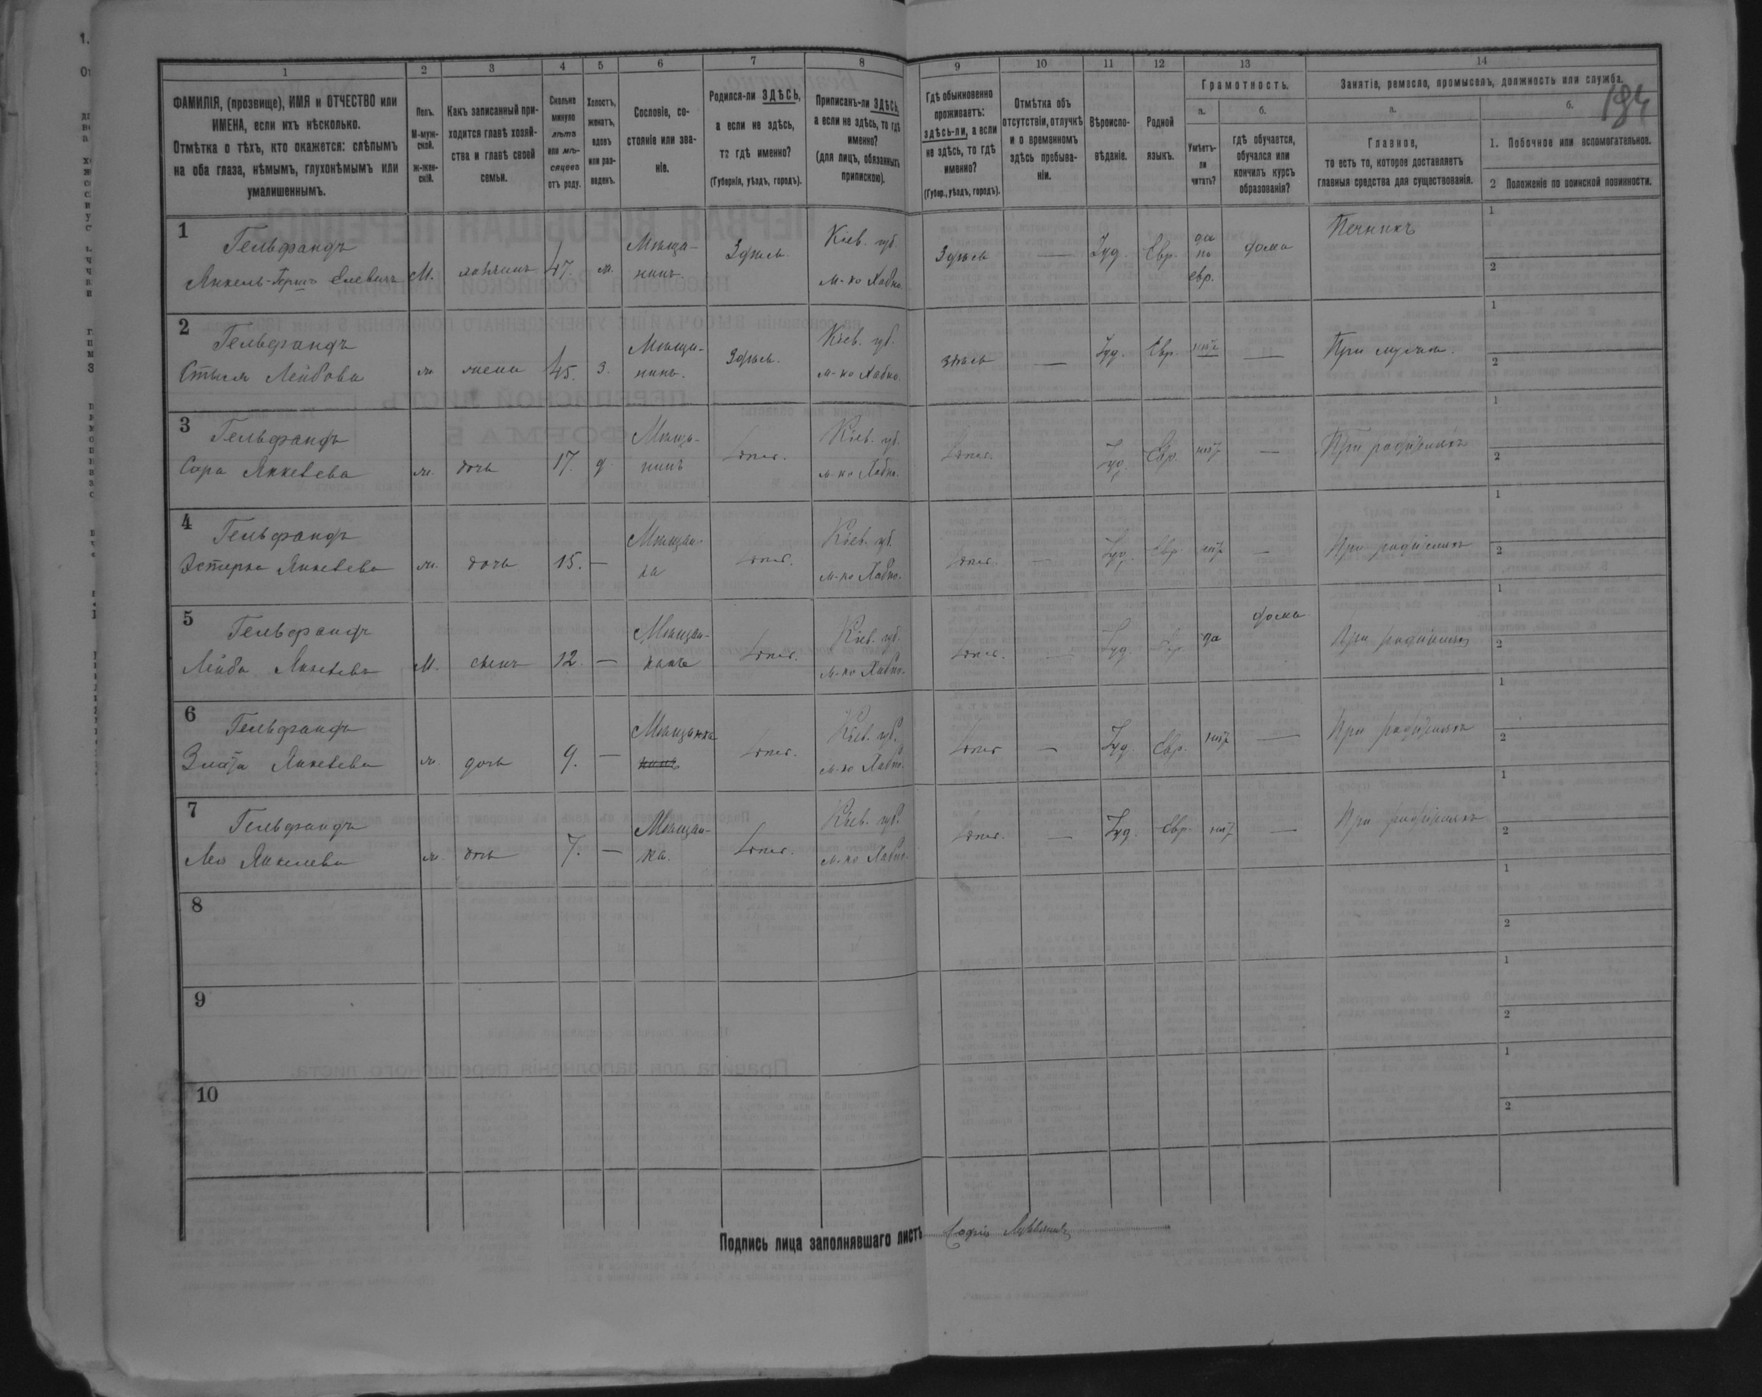 1 2 3 4 5 6 7 8 9 10 11 12 13 14
ФАМИЛІЯ, (прозвище), ИМЯ и ОТЧЕСТВО или
ИМЕНА, если ихъ нѣсколько.
Отмѣтка о тѣхъ, кто окажется: слѣпымъ
на оба глаза, нѣмымъ, глухонѣмымъ или
умалишеннымъ.
Полъ.
М-муж-
ской.
ж-жен-
скій.
Какъ записанный при-
ходится главѣ хозяй-
ства и главѣ своей
семьи.
Сколько
минуло
лѣтъ
или мѣ-
сяцевъ
отъ роду.
Холостъ,
женатъ,
вдовъ
или раз-
веденъ.
Сословіе, со-
стояніе или зва-
ніе.
Родился-ли ЗДѢСЬ,
а если не здѣсь,
то гдѣ именно?
(Губернія, уѣздъ, городъ).
Приписанъ-ли ЗДѢСЬ,
а если не здѣсь, то гдѣ
именно?
(для лицъ, обязанныхъ
припискою).
Гдѣ обыкновенно
проживаетъ:
здѣсь-ли, а если
не здѣсь, то гдѣ
именно?
(Губер., уѣздъ, городъ).
Отмѣтка объ
отсутствіи, отлучкѣ
и о временномъ
здѣсь пребыва-
ніи.
Вѣроиспо-
вѣданіе.
Родной
языкъ.
Грамотность.
а.
Умѣетъ-
ли
читать?
б.
гдѣ обучается,
обучался или
кончилъ курсъ
образованія?
Занятіе, ремесло, промыселъ, должность или служба.
а.
Главное,
то есть то, которое доставляетъ
главныя средства для существованія.
б.
1. Побочное или вспомогательное.
2 Положеніе по воинской повинности.
194
1 Гельфандъ Мѣща- Здѣсь Кіев. губ. Здѣсь — Іуд. Евр. да дома Печникъ 1
Янкель-Герш М. хозяинъ 47. ж. нинъ м-ко Хабно по евр. 2
2 Гельфандъ Мѣща- Здѣсь. Кіев. губ. здѣсь — Іуд. Евр. нѣтъ — При мужѣ. 1
Лейбова ж. жена 45. з. м-ко Хабно. 2
3 Гельфандъ Мѣща- Кіев. губ. Іуд. Евр. нѣтъ — При родителяхъ 1
Сора Янкелева ж. дочь 17. д. м-ко Хабно. 2
4 Гельфандъ Мѣщан- Кіев. губ. — Іуд. Евр. нѣтъ — При родителяхъ 1
Эстерка Янкелева ж. дочь 15. — ка м-ко Хабно. 2
5 Гельфандъ Мѣщан- Кіев. губ. — Іуд. Евр. да дома При родителяхъ 1
Лейба Янкелевъ М. сынъ 12. — м-ко Хабно. 2
6 Гельфандъ Мѣщанка Кіев. губ. — Іуд. Евр. нѣтъ — При родителяхъ 1
Злата Янкелева ж. дочь 9. — м-ко Хабно. 2
7 Гельфандъ Мѣщан- Кіев. губ. — Іуд. Евр. нѣтъ — При родителяхъ 1
Лея Янкелева ж. дочь 7. — ка. м-ко Хабно 2
8 1
2
9 1
2
10 1
2
Подпись лица заполнявшаго листъ